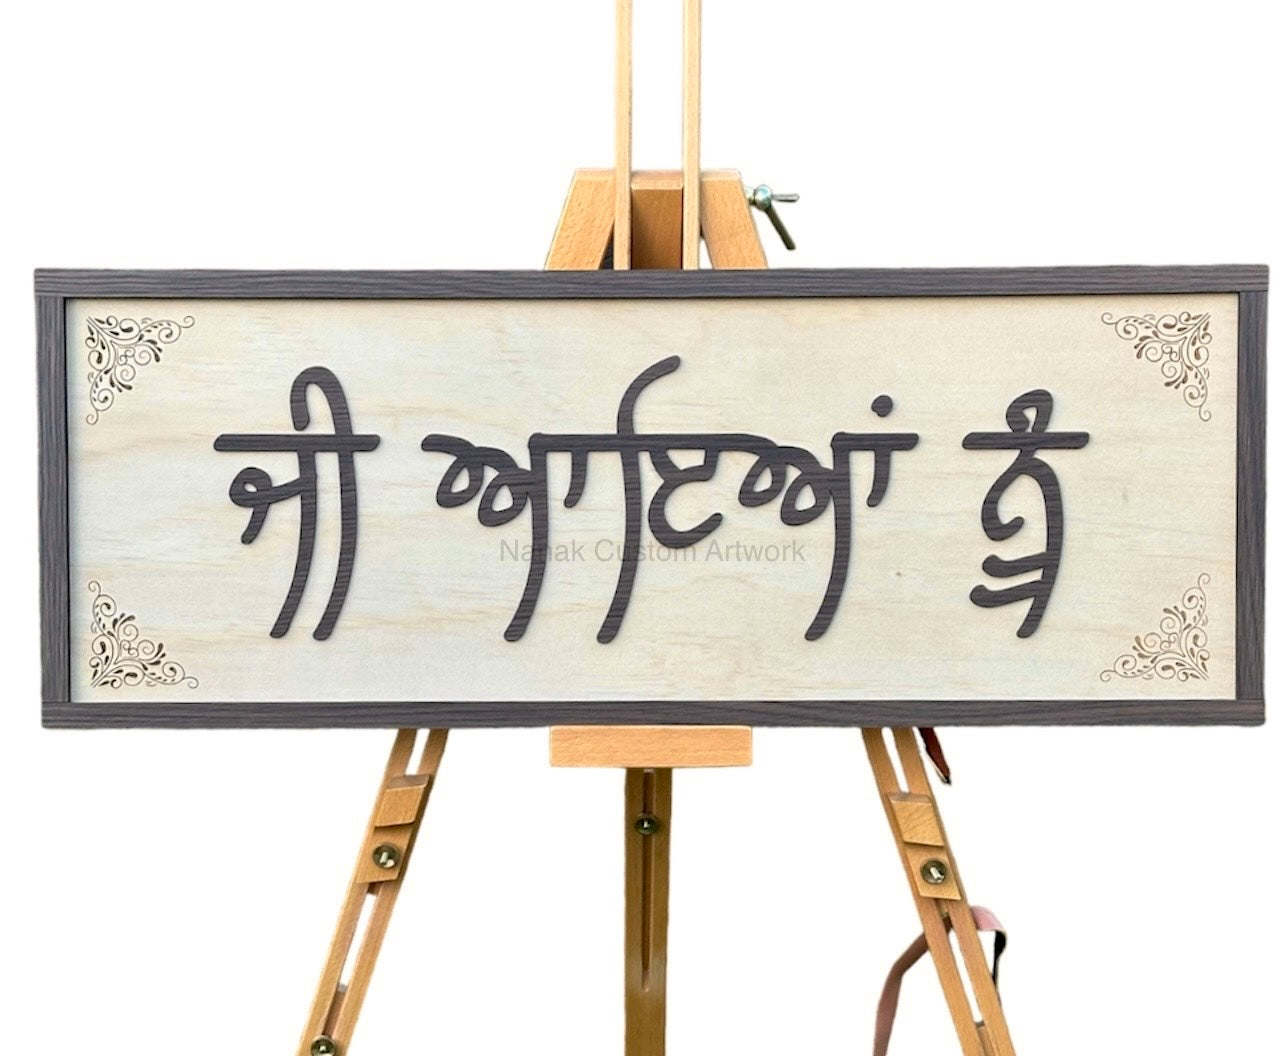 ਜੀ ਆਇਆਂ ਨੂੰ
Nanak Custom Artwork